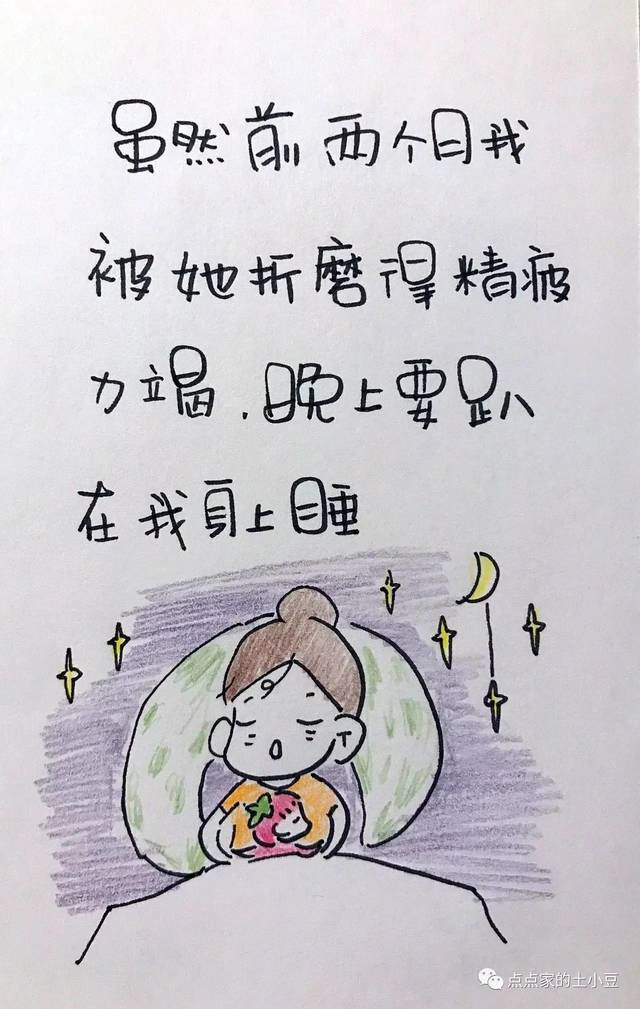 虽然前两个月我
被她折磨得精疲
力竭，晚上要趴
在我身上睡
点点家的土小豆